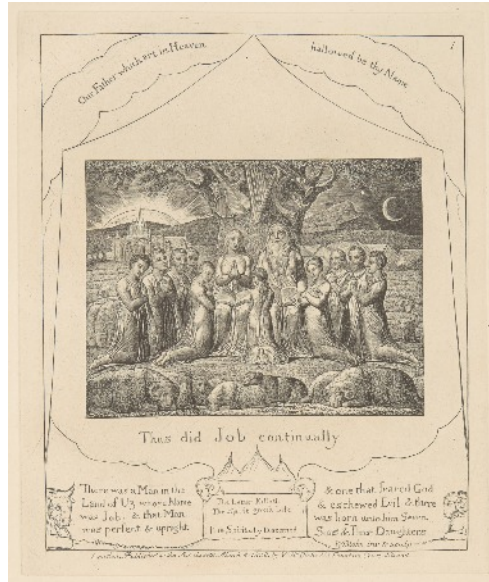 Our Father which art in Heaven
hallowed be thy Name
1
Thus did Job continually
There was a Man in the
Land of Uz whose Name
was Job. & that Man
was perfect & upright
The Letter Killeth
The Spirit giveth Life
It is Spiritually Discerned
& one that feared God
& eschewed Evil & there
was born unto him Seven
Sons & Three Daughters
London. Published as the Act directs March 8 1825 by